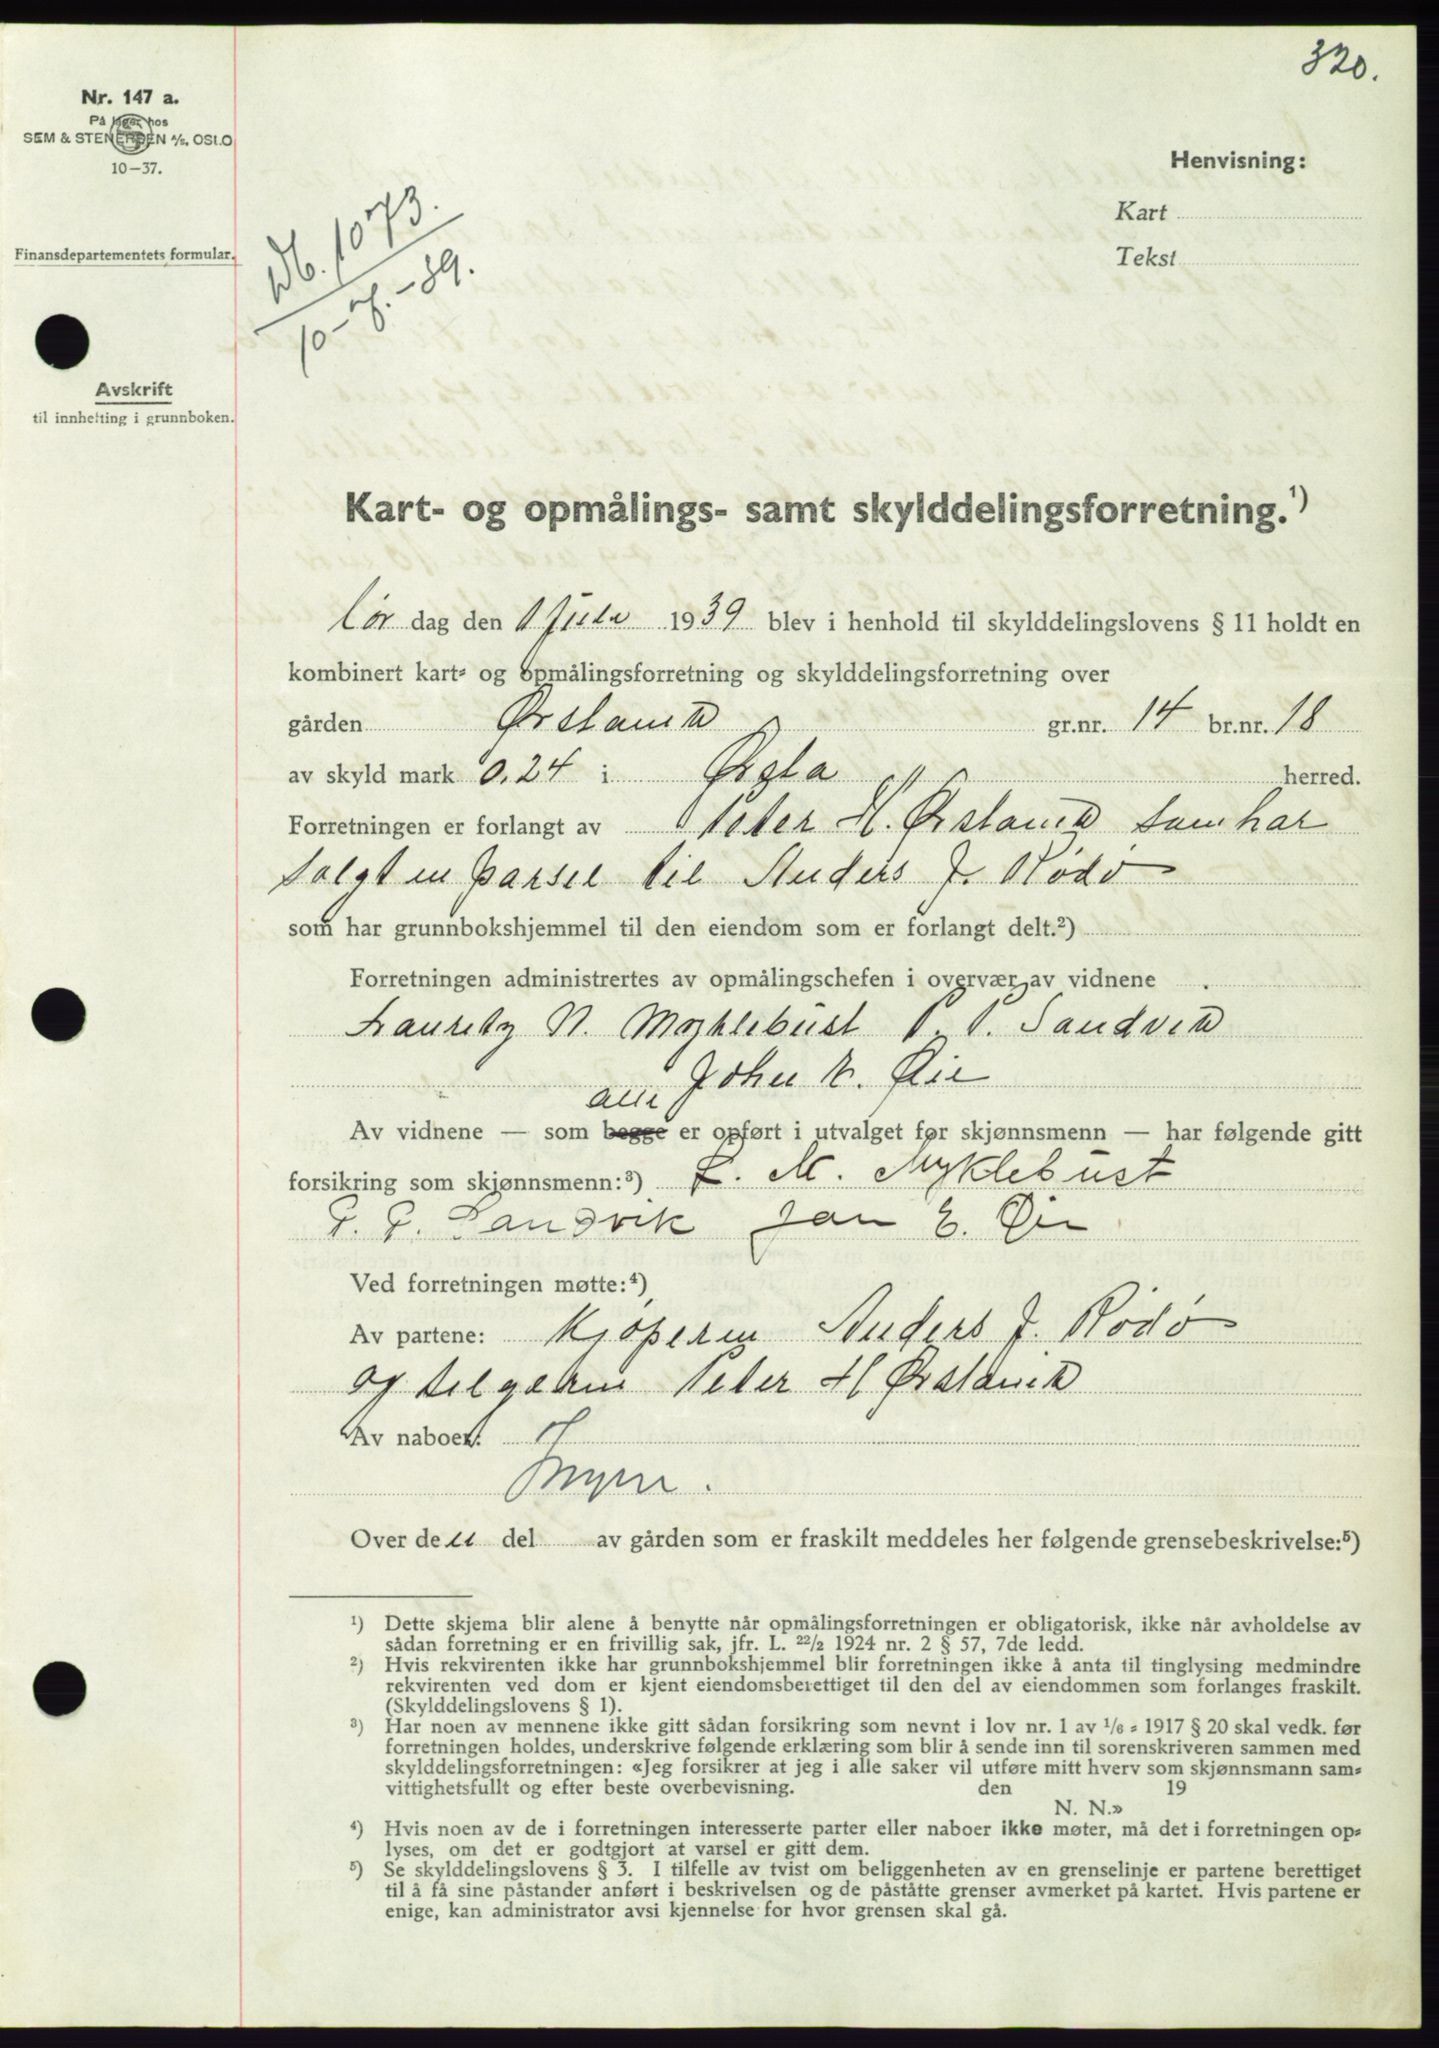 320.
Nr. 147 a.
På lager hos
SEM & STENERSEN A/S, OSLO
10-37.
Henvisning:
Kart
Tekst
Finansdepartementets formular.
Db. 1073.
10-7.-39.
Avskrift
til innhefting i grunnboken.
Kart- og opmålings- samt skylddelingsforretning.¹)
Lør dag den 1 Juli 1939 blev i henhold til skylddelingslovens § 11 holdt en
kombinert kart- og opmålingsforretning og skylddelingsforretning over
gården Ørstavik gr.nr. 14 br.nr. 18
av skyld mark 0,24 i Ørsta herred.
Forretningen er forlangt av Peter H. Ørstavik som har
solgt en parsel til Anders J. Rødø
som har grunnbokshjemmel til den eiendom som er forlangt delt.²)
Forretningen administrertes av opmålingschefen i overvær av vidnene
Lauritz N. Myklebust P. P. Sandvik
John E. Øie
alle
Av vidnene — som begge er opført i utvalget før skjønnsmenn — har følgende gitt
forsikring som skjønnsmenn:³) L. M. Myklebust
P. P. Sandvik Jon E. Øie
Ved forretningen møtte:⁴)
Av partene: Kjøperen Anders J. Rødø
og selgeren Peter H Ørstavik
Av naboer:
Ingen.
Over den del av gården som er fraskilt meddeles her følgende grensebeskrivelse:⁵)
¹) Dette skjema blir alene å benytte når opmålingsforretningen er obligatorisk, ikke når avholdelse av
sådan forretning er en frivillig sak, jfr. L. 22/2 1924 nr. 2 § 57, 7de ledd.
²) Hvis rekvirenten ikke har grunnbokshjemmel blir forretningen ikke å anta til tinglysing medmindre
rekvirenten ved dom er kjent eiendomsberettiget til den del av eiendommen som forlanges fraskilt.
(Skylddelingslovens § 1).
³) Har noen av mennene ikke gitt sådan forsikring som nevnt i lov nr. 1 av 1/6 - 1917 § 20 skal vedk. før
forretningen holdes, underskrive følgende erklæring som blir å sende inn til sorenskriveren sammen med
skylddelingsforretningen: «Jeg forsikrer at jeg i alle saker vil utføre mitt hverv som skjønnsmann sam-
vittighetsfullt og efter beste overbevisning. den 19
N. N.»
⁴) Hvis noen av de i forretningen interesserte parter eller naboer ikke møter, må det i forretningen op-
lyses, om det er godtgjort at varsel er gitt dem.
⁵) Se skylddelingslovens § 3. I tilfelle av tvist om beliggenheten av en grenselinje er partene berettiget
til å få sine påstander anført i beskrivelsen og de påståtte grenser avmerket på kartet. Hvis partene er
enige, kan administrator avsi kjennelse for hvor grensen skal gå.